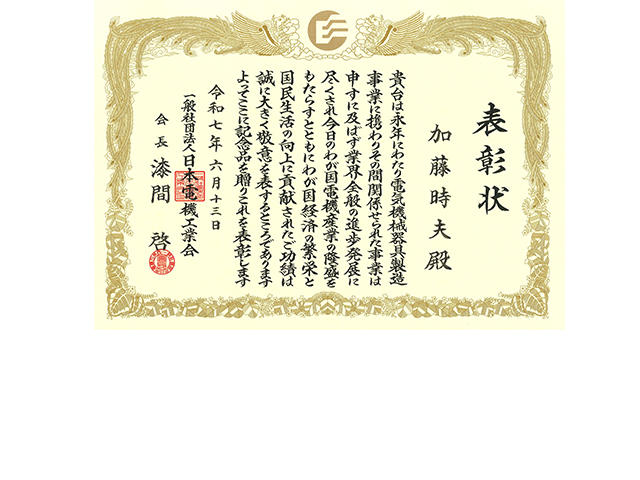 表彰状
加藤時夫殿
貴台は永年にわたり電気機械器具製造
事業に携わりその間関係せられた事業は
申すに及ばず業界全般の進歩発展に
尽くされ今日のわが国電機産業の隆盛を
もたらすとともにわが国経済の繁栄と
国民生活の向上に貢献されたご功績は
誠に大きく敬意を表するところであります
よってここに記念品を贈りこれを表彰します
令和七年六月十三日
一般社団法人日本電機工業会
会長 漆間 啓